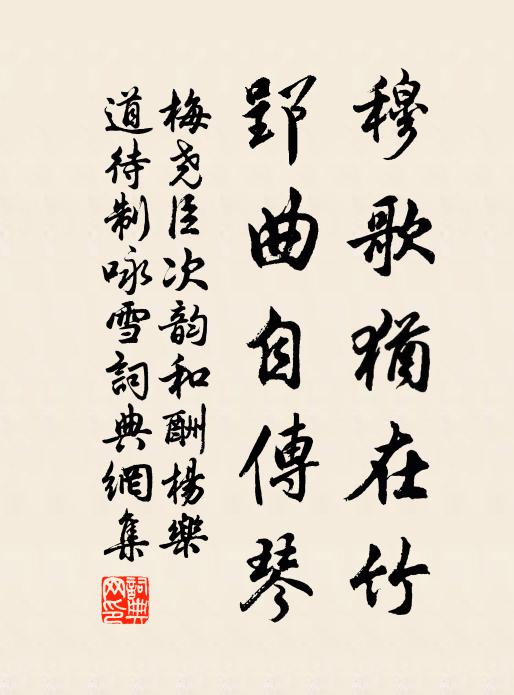 穆歌猶在竹
郢曲自傳琴
梅尧臣次韵和酬楊樂
道待制咏雪詞典網集